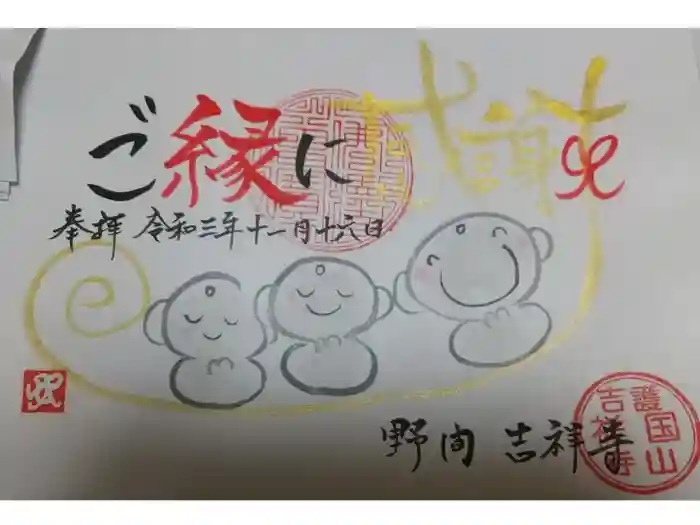 ご縁に感謝
奉拝 令和三年十一月十六日
野間 吉祥寺
護国山
吉祥寺